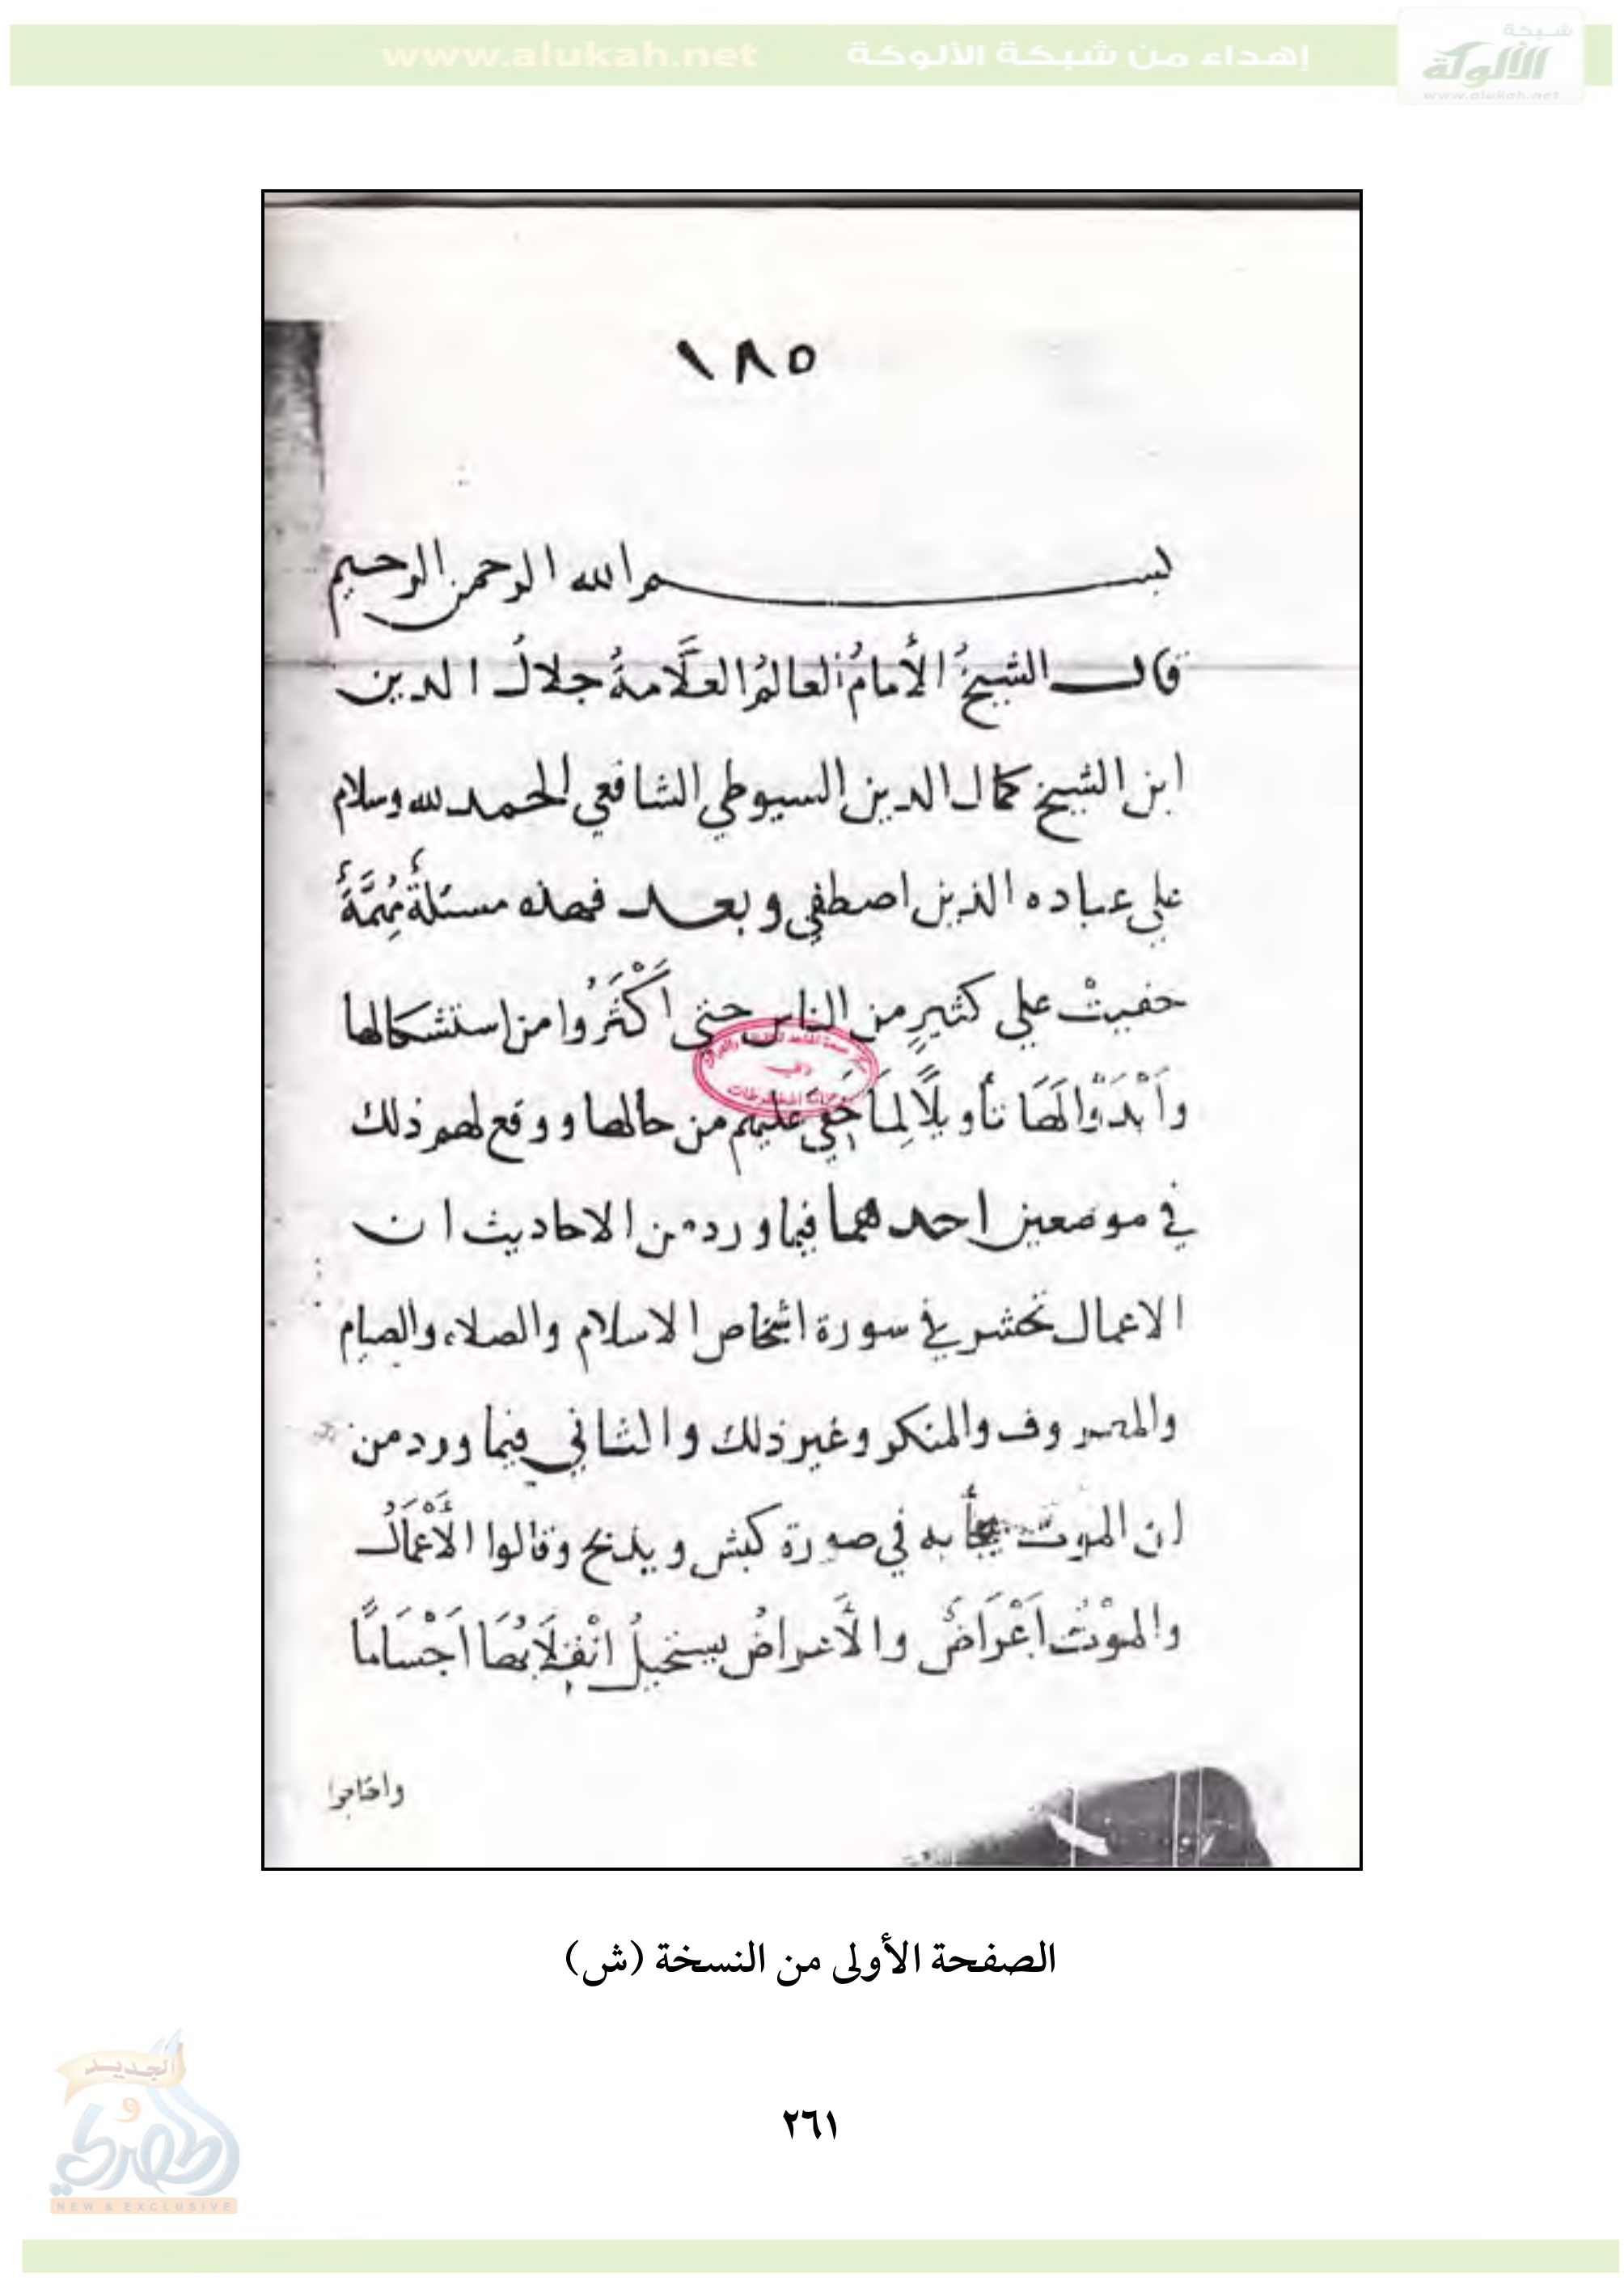 شبكة
الألوكة
www.alukah.net
إهداء من شبكة الألوكة
www.alukah.net
١٨٥
بسم الله الرحمن الرحيم
قال الشيخُ الأمامُ العالمُ العلَّامةُ جلالُ الدين
ابن الشيخ كمال الدين السيوطي الشافعي الحمد لله وسلام
علي عباده الذين اصطفي وبعد فهذه مسئلةٌ مُهِمَّةٌ
خفيتْ علي كثيرٍ من الناس حتى أكْثَرُوا من استشكالها
وَأَبْدَوْا لَهَا تأويلًا لِمَا خَفِيَ عليهم من حالها ووقع لهم ذلك
في موضعين احدهما فيما ورد من الاحاديث ان
الاعمال تحشر في سورة اشخاص الاسلام والصلاه والصيام
والمعروف والمنكر وغير ذلك والثاني فيما ورد من
ان الموت يجأ به في صورة كبش ويذبح وقالوا الأَعْمَالُ
والموْتُ اَعْرَاضٌ والأعراضُ يستحيلُ انْقِلَابُهَا اَجْسَامًا
واحتاجوا
الصفحة الأولى من النسخة (ش)
٢٦١
الجديد
و
الحصري
NEW & EXCLUSIVE